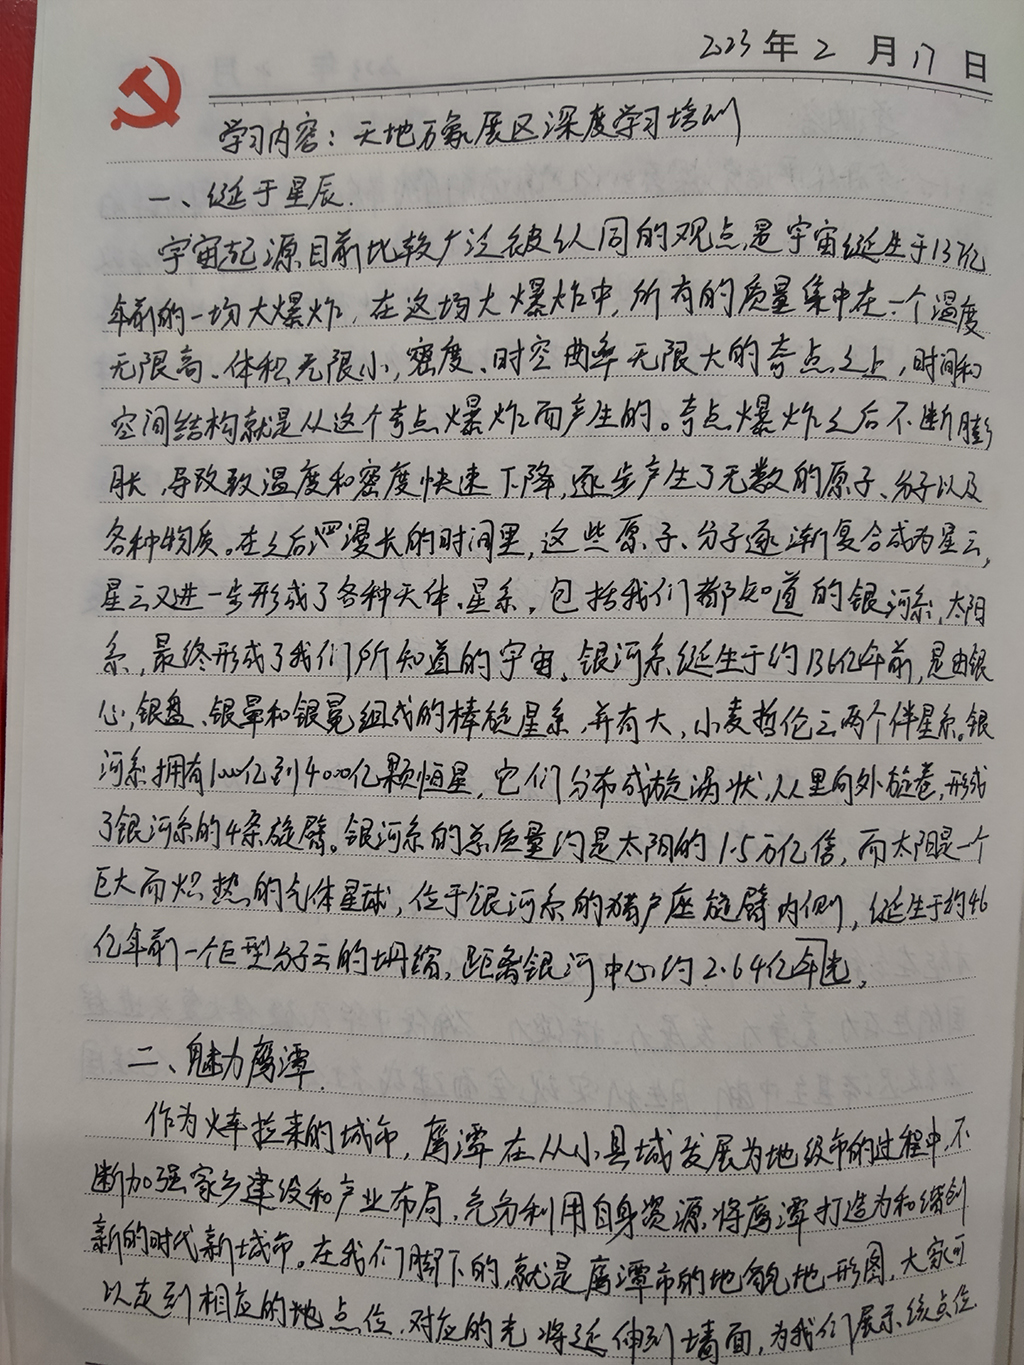 2023年2月17日
学习内容：天地万象展区深度学习培训
一、诞于星辰.
宇宙起源目前比较广泛被认同的观点,是宇宙诞生于137亿
年前的一场大爆炸，在这场大爆炸中,所有的质量集中在一个温度
无限高、体积无限小,密度、时空曲率无限大的奇点之上,时间和
空间结构就是从这个奇点爆炸而产生的。奇点爆炸之后不断膨
胀,导致致温度和密度快速下降,逐步产生了无数的原子、分子以及
各种物质。在之后漫长的时间里,这些原子、分子逐渐复合成为星云,
星云又进一步形成了各种天体、星系,包括我们都知道的银河系,太阳
系,最终形成了我们所知道的宇宙。银河系诞生于约136亿年前,是由银
心,银盘、银晕和银冕组成的棒旋星系,并有大,小麦哲伦云两个伴星系。银
河系拥有1000亿到4000亿颗恒星,它们分布成旋涡状,从里向外旋卷,形成
了银河系的4条旋臂。银河系的总质量约是太阳的1.5万亿倍,而太阳是一个
巨大而炽热的气体星球,位于银河系的猎户座旋臂内侧,诞生于约46
亿年前一个巨型分子云的坍缩,距离银河中心约2.64亿年光。
二、魅力鹰潭.
作为火车拉来的城市,鹰潭在从小县城发展为地级市的过程中,不
断加强家乡建设和产业布局,充分利用自身资源,将鹰潭打造为和谐创
新的时代新城市。在我们脚下的,就是鹰潭市的地貌地形图,大家可
以走到相应的地点位,对应的光将延伸到墙面,为我们展示该点位